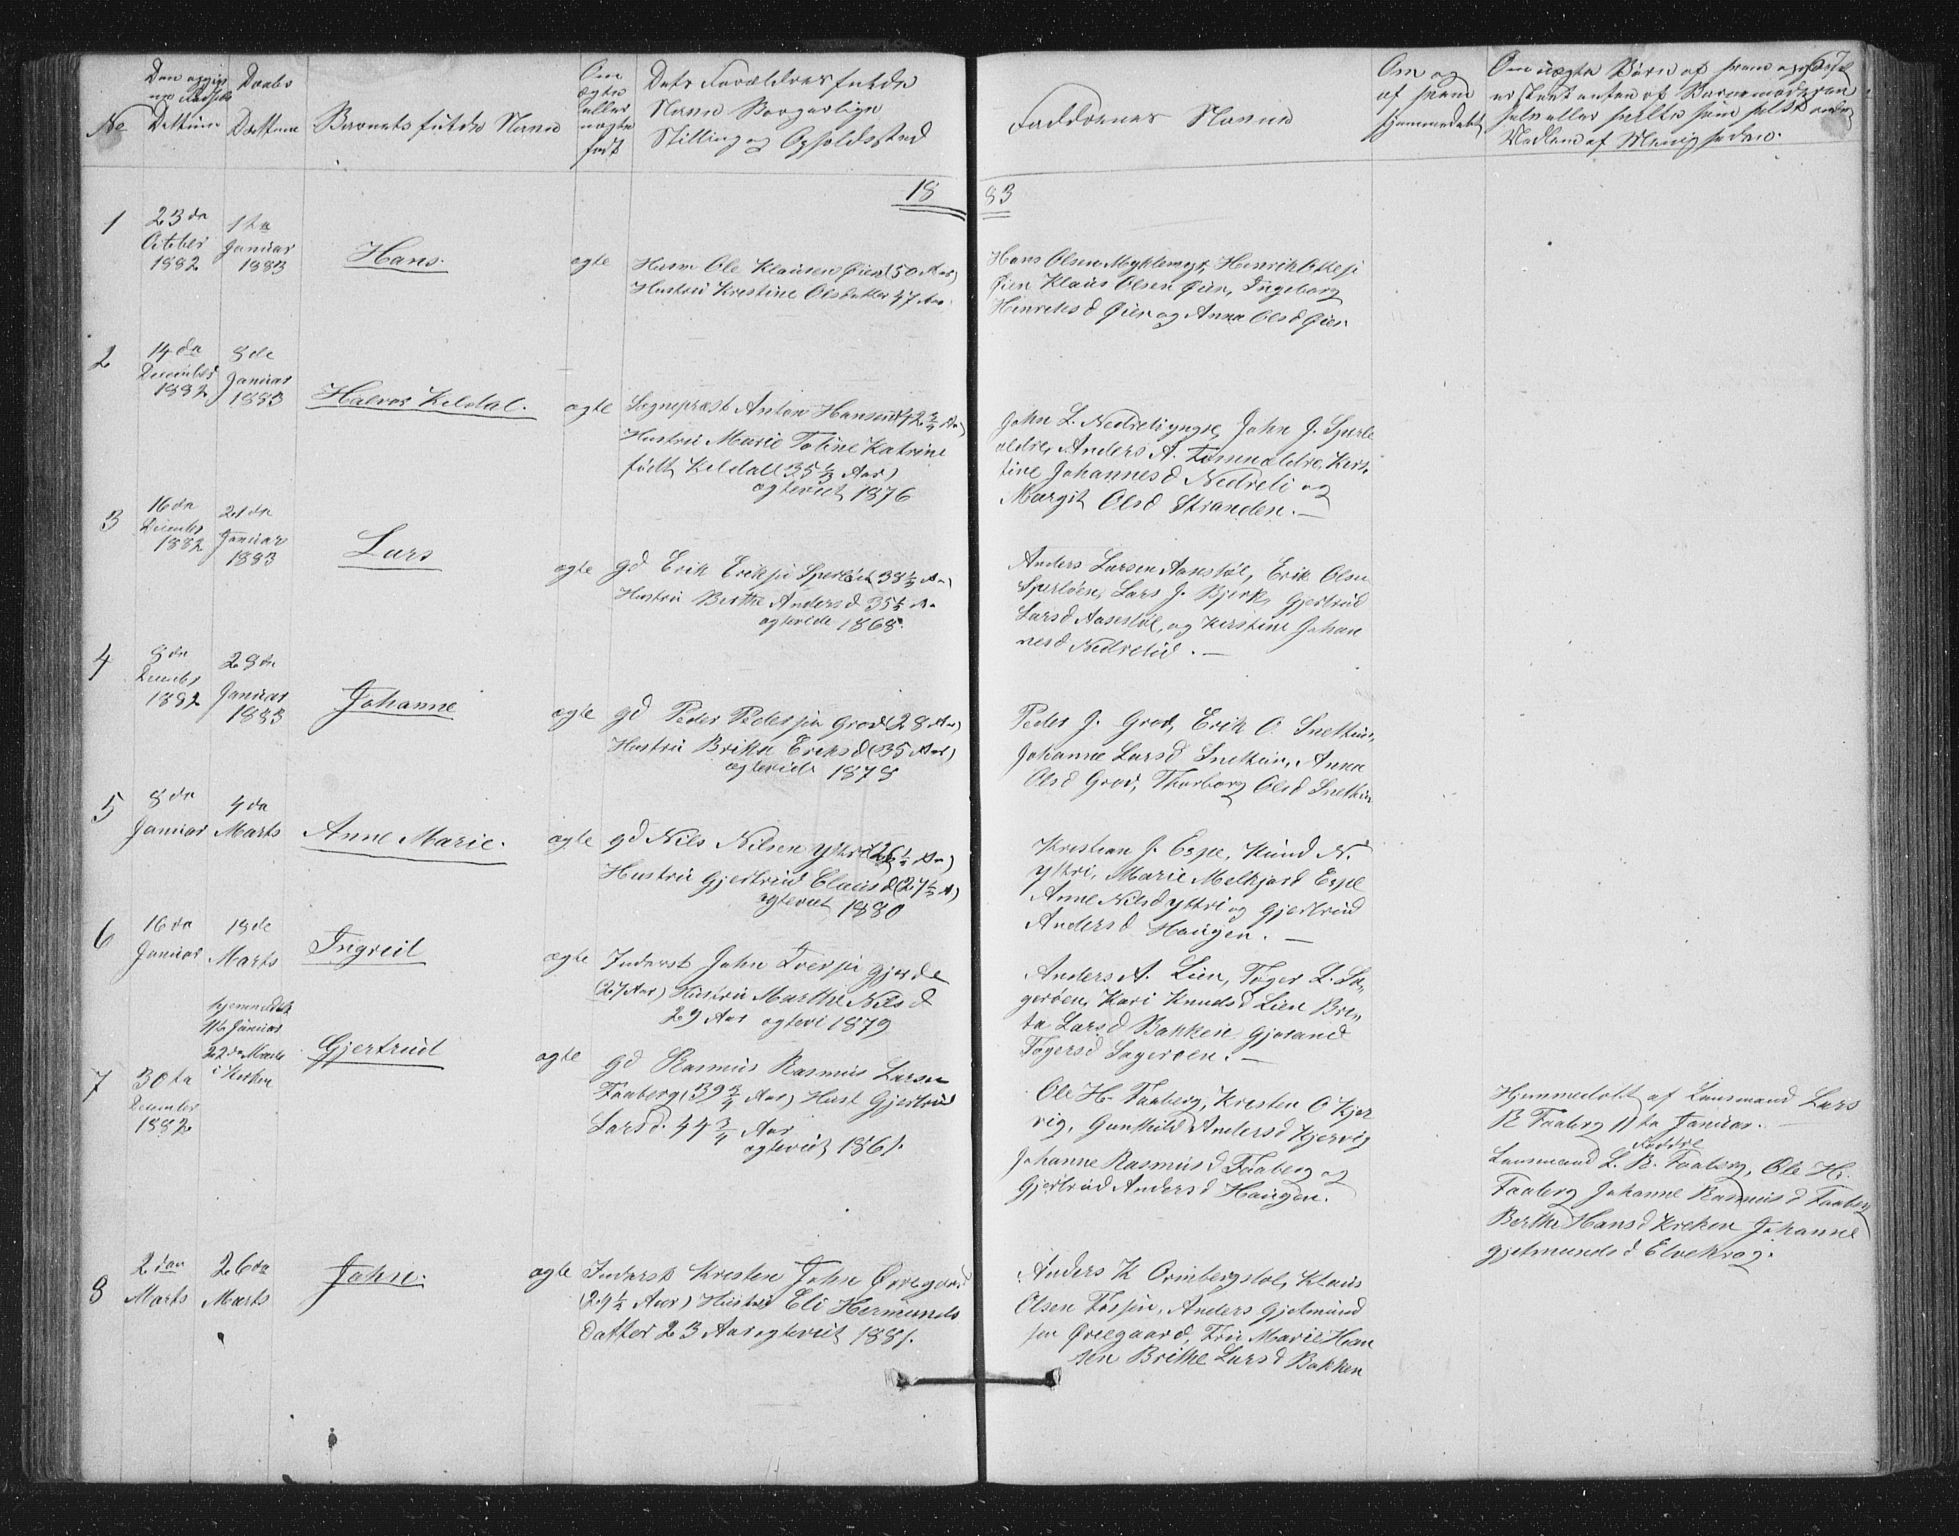 No
Datum
Daabs
Dattum
Barnets fulde Navn
Om
ægte
eller
uægte
født
Dets Forældres fulde
Navn Borgerlige
Stilling og Opholdssted
Faddernes Navne
Om og
af hvem
hjemmedøbt
67
Medlem af Menigheden.
18 83
1
23de
October
1882
1te
Januar
1883
Hans.
ægte
Husm Ole Klausen Øien (50 Aar)
Hustru Kristine Olsdatter 47 Aar
Hans Olsen Myklemyr, Henrik
Øien Klaus Olsen Øien, Ingeborg
Henriksd Øien og Anna Olsd Øien
2
14de
December
1882
8de
Januar
1883
Halvor Keldal.
ægte
Sognepræst Anton Hansen (42 3/4 Aar)
Hustru Marie Tofine Katrine
født Keldal (35 1/2 Aar)
ægteviet 1876
John L. Nedreli yngre, John J. Sperle
ældre, Anders A. ældre, Kirs-
tine Johannesd Nedreli og
Margit Olsd Stranden. —
3
16de
December
1882
21de
Januar
1883
Lars
ægte
gd Erik Eriksen Sperløen 38 1/2 Aar
Hustru Berthe Andersd 35 1/2 A.
ægteviede 1868.
Anders Larsen Aasestøl, Erik Olsen
Sperløen, Lars J. Bjørk, Gjertrud
Larsd Aasestøl, og Kirstine Johan
nesd Nedrelid. —
4
8de
Decemb
1882
28de
Januar
1883
Johanne
ægte
gd Peder Pedersen Grov (28 Aar)
Hustru Brita Eriksd (35 Aar)
ægteviede 1878
Peder J. Grov, Erik O. Snethun,
Johanne Larsd Snethun, Anna
Olsd Grov, Thorborg Olsd Snethun
5
8de
Januar
4de
Marts
Anne Marie.
ægte
gd Nils Nilsen Yttri (26 1/2 Aar)
Hustru Gjertrud Clausd (27 1/2 A)
ægteviet 1880
Kristian J. Espe, Knud N.
Yttri, Marie Melkjord Espe
Anne Nilsd Yttri og Gjertrud
Andersd Haugen. —
6
16de
Januar
18de
Marts
Ingreid
ægte
Inderst John Iversen Gjerde
(27 Aar) Hustru Marthe Nilsd
29 Aar ægtevi 1879
Anders A. Lien, Tøger L. Sø-
gerøen, Kari Knudsd Lien Bri-
ta Larsd Bakken Gjørand
Tøgersd Søgerøen. —
7
30te
December
1882
hjemmedøbt
11te Januar
22de Marts
i Kirken
Gjertrud
ægte
gd Rasmus Rasmus Larsen
Faaberg (39 3/4 Aar) Hust Gjertrud
Larsd. 44 3/4 Aar
ægteviet 1861.
Ole H. Faaberg, Kristen O Kjer
vig, Gunhild Andersd Kjervig
Johanne Rasmusd Faaberg og
Gjertrud Andersd Haugen.
Hjemmedøbt af Lensmand Lars
R Faaberg 11te Januar.
Faddre
Lensmand L. R. Faaberg, Ole H.
Faaberg Johanne Rasmusd Faaberg
Berthe Hansd Kreken Johanne
Gjelmundsd Elvekrog.
8
2den
Marts
26de
Marts
John.
ægte
Inderst Kristen John Øvregaard
(24 1/2 Aar) Hustru Eli Hermunds
datter 23 Aar ægteviet 1881.
Anders K Ormbergstøl, Klaus
Olsen Fossen, Anders Gjelmund
sen Øvregaard, Fru Marie Han
sen Brithe Larsd Bakken